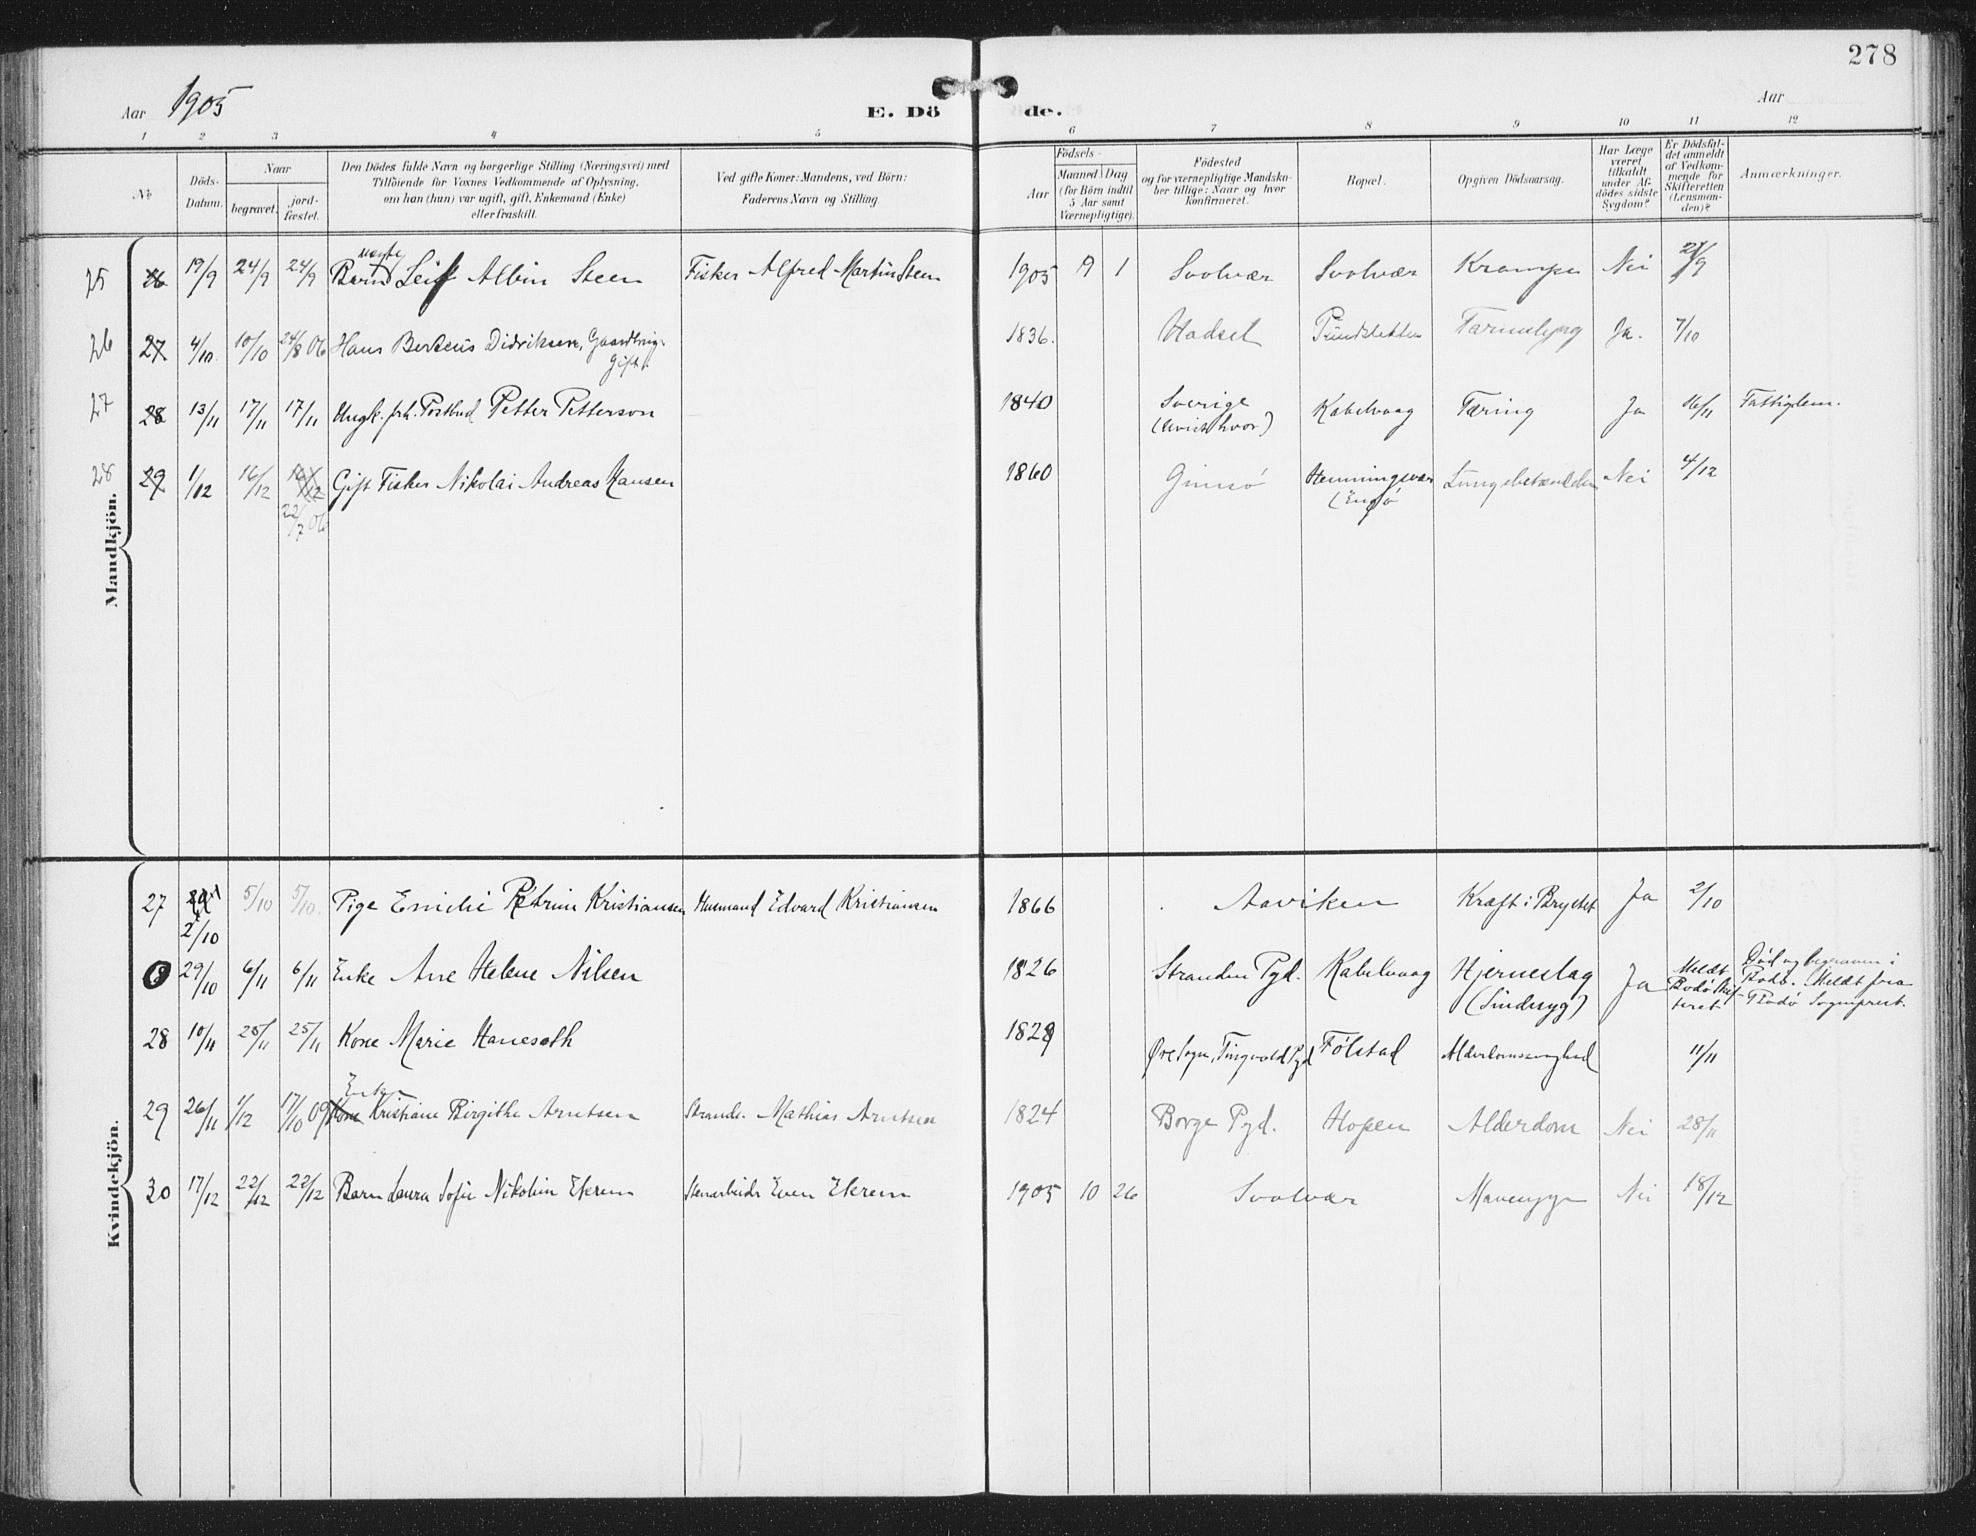 278
Aar 1905
E. Dö de.
Aar
1 2 3 4 5 6 7 8 9 10 11 12
No
Döds-Datum.
Naar
begravet.
jord-fæstet.
Den Dödes fulde Navn og borgerlige Stilling (Næringsvei) med
Tilföiende for Voxnes Vedkommende af Oplysning,
om han (hun) var ugift, gift, Enkemand (Enke)
eller fraskilt.
Ved gifte Koner: Mandens, ved Börn:
Faderens Navn og Stilling.
Födsels-
Aar
Maaned Dag
(for Börn indtil
5 Aar samt
Værnepligtige).
Födested
og for værnepligtige Mandska-
ber tillige: Naar og hvor
konfirmeret.
Bopæl.
Opgiven Dödsaarsag.
Har Læge
været
tilkaldt
under Af-
dödes sidste
Sygdom?
Er Dödsfal-
det anmeldt
af Vedkom-
mende for
Skifteretten
(Lensman-
den)?
Anmærkninger.
Mandkjön.
25 26 19/9 24/9 24/9 Barn Leif Albin Steen Fisker Alfred Martin Steen 1905 9 1 Svolvær Svolvær Krampe Nei 21/9
26 27 4/10 10/10 24/8 06 Hans Berteus Didriksen, Gaardbrug. 1836. Hadsel Pundslettten Tarmslyng Ja. 7/10
gift.
27 28 13/11 17/11 17/11 Ungk. frh. Postbud Petter Petterson 1840 Sverige Kabelvaag Tæring Ja 16/11 Fattiglem.
(uvist hvor)
28 29 1/12 16/12 16/12 Gift Fisker Nikolai Andreas Hansen 1860 Gimsø Henningsvær Lungebetændelse Nei 4/12
22/7 06 (Engø
Kvindekjön.
27 2/10 5/10 5/10. Pige Emelie Petrine Kristiansen Husmand Edvard Kristiansen 1866 Aaviken Kræft i Brystet Ja 2/10
29/10 6/11 6/11 Enke Ane Helene Nilsen 1826 Stranden Pgd. Kabelvaag Hjerneslag Ja Meldt Død og begraven i
(Sindssyg) Bodø Skif- Bodø. Meldt fra
teret Bodø Sogneprest.
28 10/11 25/11 25/11 Kone Marie Haneseth 1829 Øre Sogn, Tingvold Pgd Følstad Alderdomssvaghed 11/11
Enke
29 26/11 1/12 17/10 09 Kone Kristiane Birgithe Arntsen Strands. Mathias Arntsen 1824 Borge Pgd. Hopen Alderdom Nei 28/11
30 17/12 22/12 22/12 Barn Laura Sofie Nikolin Ekrem Stenarbeider Even Ekrem 1905 10 26 Svolvær Mavesyge Nei 18/12